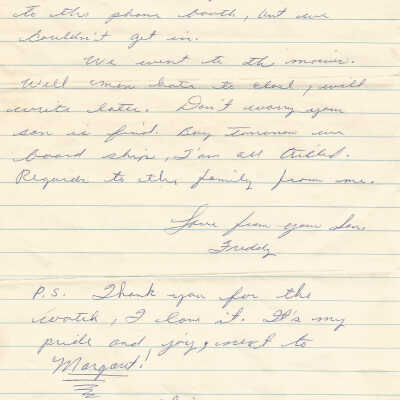 to the phone booth, but we
couldn't get in.
We went to the movies.
Well mom have to close, will
write later. Don't worry your
son is fine. Boy tomorrow we
board ship, I'am all thrilled.
Regards to the family from me.
Love from your Son
Freddy
P.S. Thank you for the
watch, I love it. It's my
pride and joy, next to
Margaret!